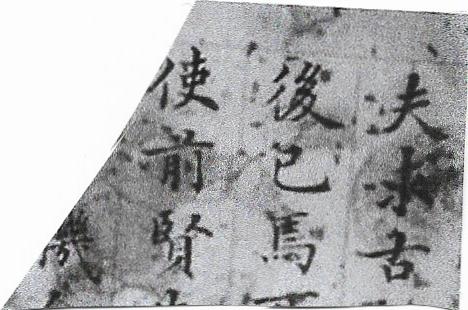 夫求古
後已馬
使前賢
機